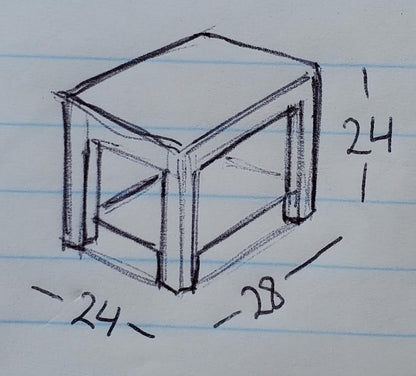 24
24
28